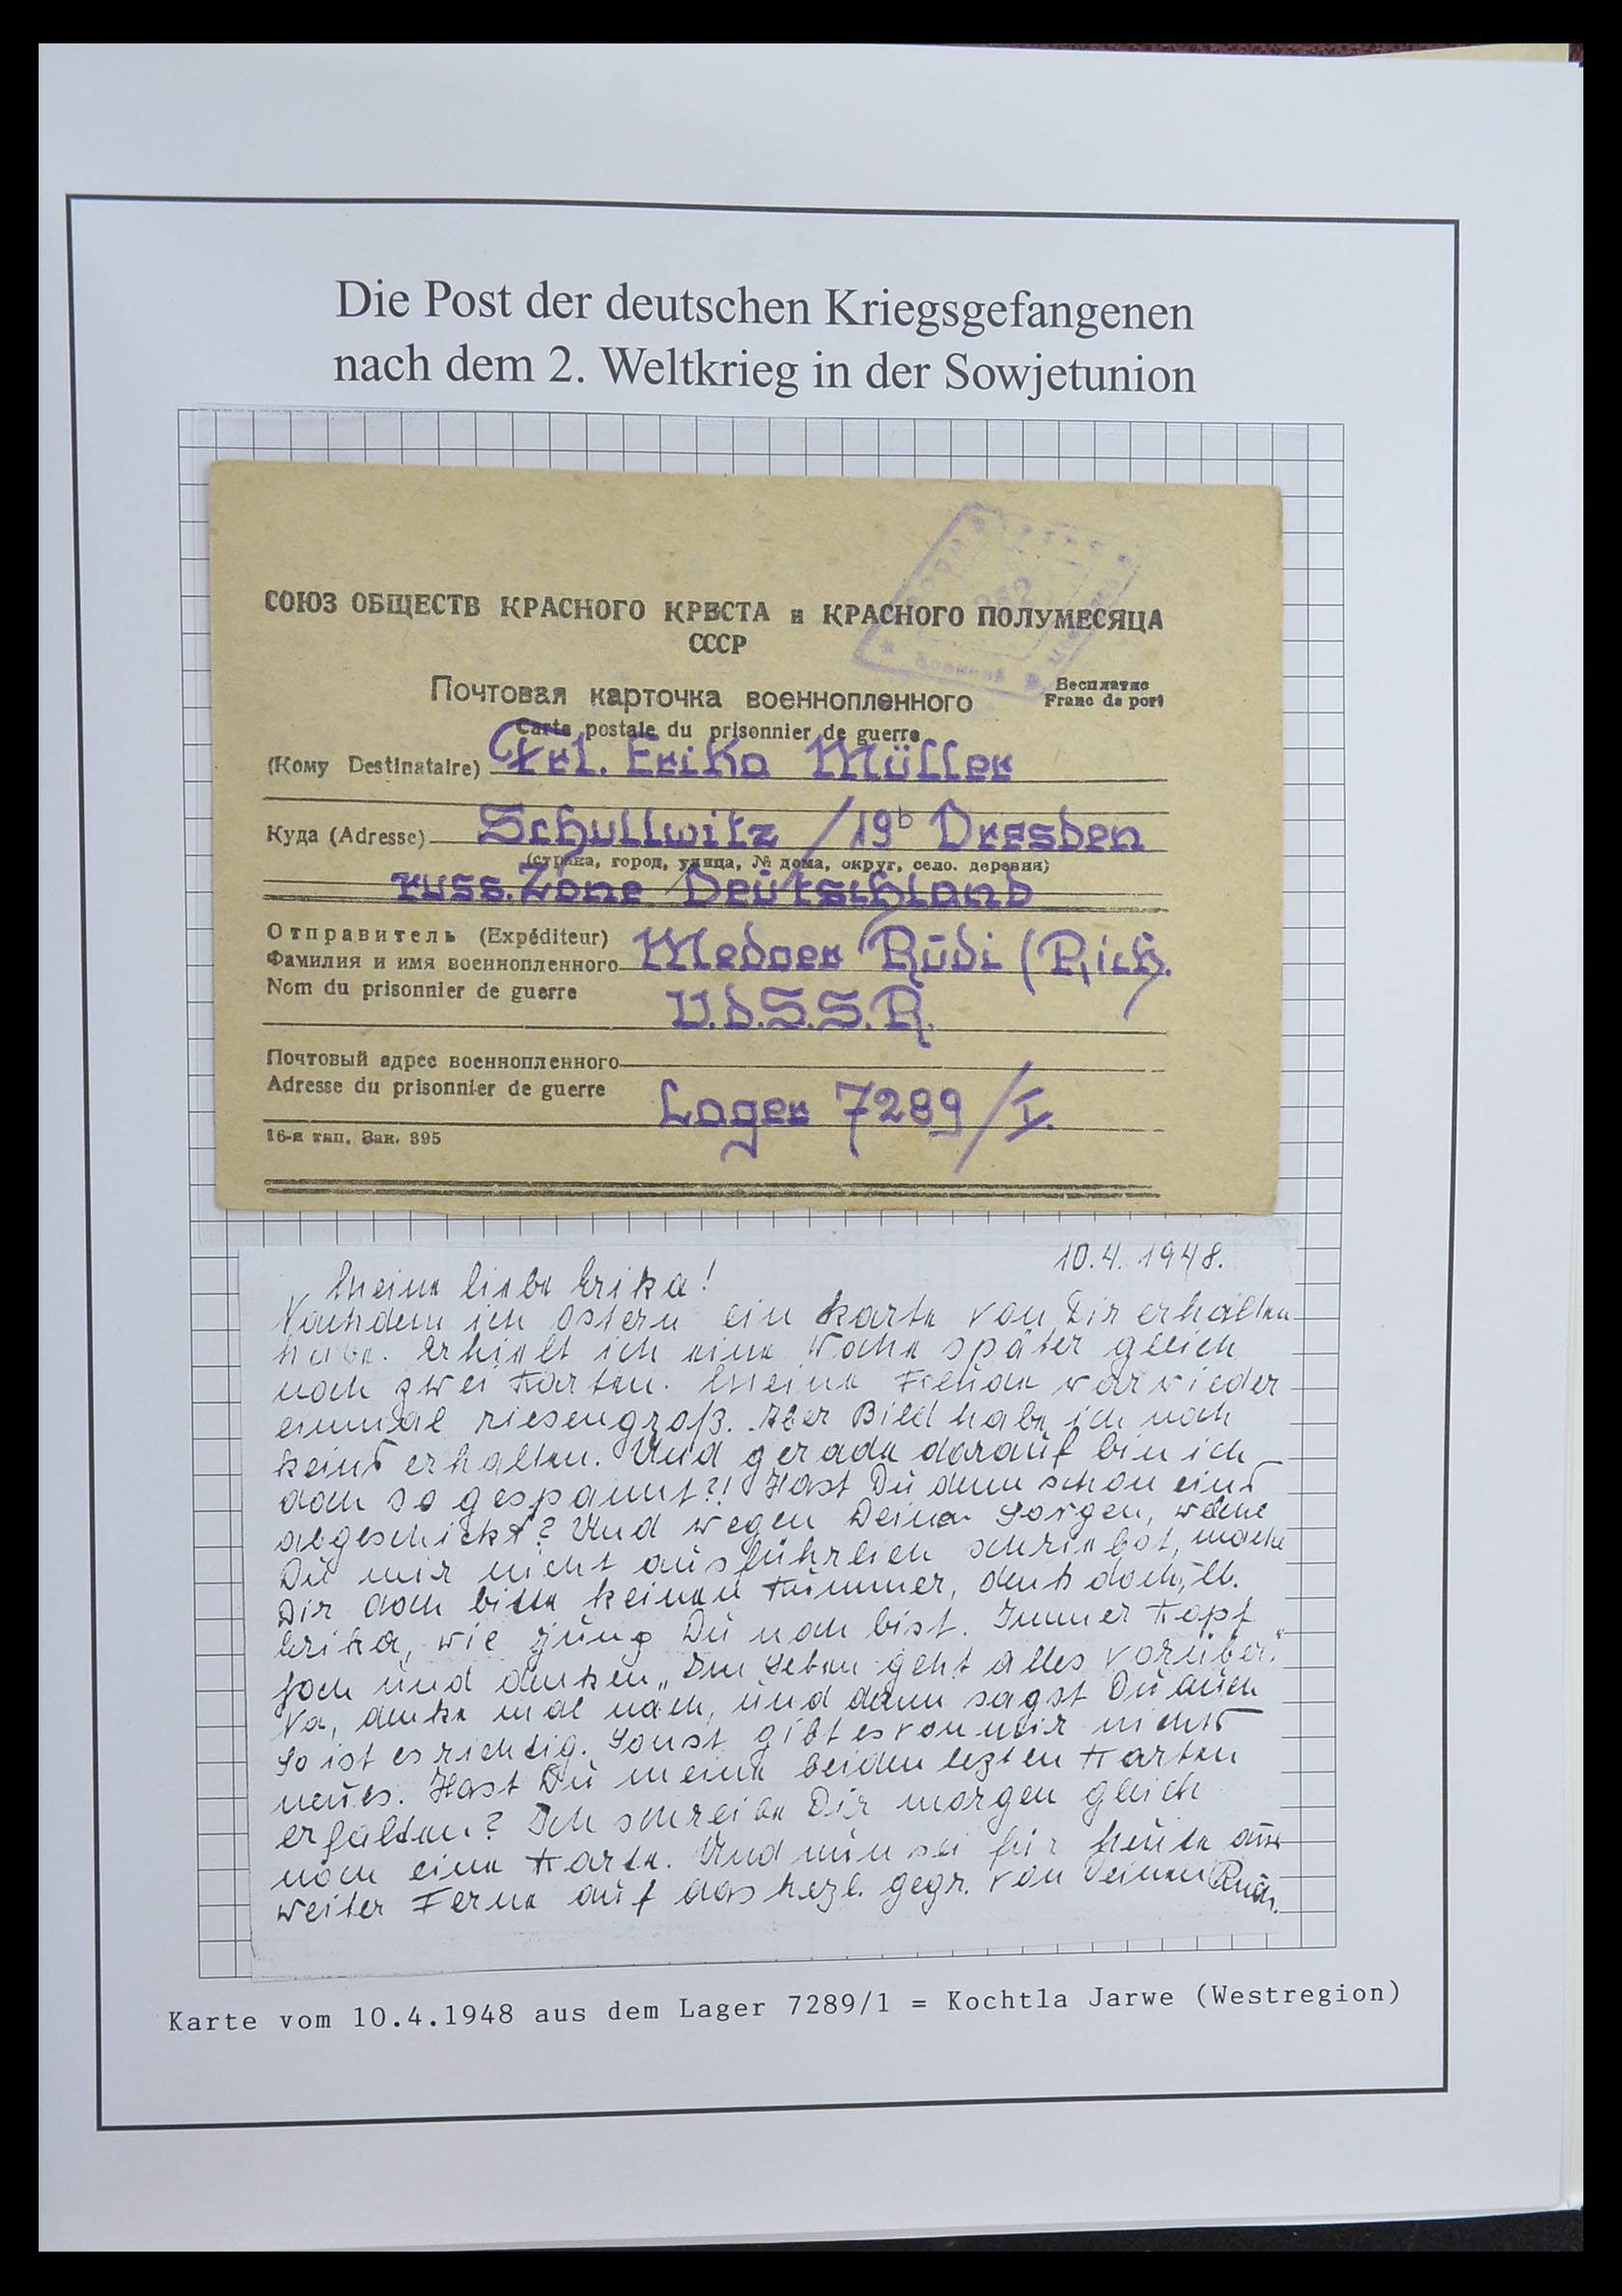 Die Post der deutschen Kriegsgefangenen
nach dem 2. Weltkrieg in der Sowjetunion
252
СОЮЗ ОБЩЕСТВ КРАСНОГО КРЕСТА и КРАСНОГО ПОЛУМЕСЯЦА
СССР
Почтовая карточка военнопленного
Бесплатно
Franc de port
Carte postale du prisonnier de guerre
(Кому Destinataire) Frl. Erika Müller
Куда (Adresse) Schullwitz /19b Dresden
(страна, город, улица, № дома, округ, село. деревня)
russ. Zone Deutschland
Отправитель (Expéditeur)
Фамилия и имя военнопленного Medger Rudi (Rich.
Nom du prisonnier de guerre
U.d.S.S.R.
Почтовый адрес военнопленного
Adresse du prisonnier de guerre
Lager 7289/I.
16-я тип. Зак. 395
10.4. 1948.
Meine liebe Erika!
Nachdem ich Ostern ein Karte von Dir erhalten
habe. Erhielt ich eine Woche später gleich
noch zwei Karten. Meine Freude war wieder
einmal riesengroß. Aber Bild habe ich noch
keins erhalten. Und gerade darauf bin ich
doch so gespannt?! Hast Du denn schon eins
abgeschickt? Und wegen Deiner Sorgen, welche
Du mir nicht ausführlich schriebst, mache
Dir doch bitte keinen Kummer, denk doch, lb.
Erika, wie jung Du noch bist. Immer Kopf
hoch und denken „Im Leben geht alles vorüber."
Na, denke mal nach, und dann sagst Du auch
so ist es richtig. Sonst gibt es von mir nichts
neues. Hast Du meine beiden lezten Karten
erhalten? Ich schreibe Dir morgen gleich
noch eine Karte. Und nun sei für heute aus
weiter Ferne auf das herzl. gegr. von Deinem Rudi.
Karte vom 10.4.1948 aus dem Lager 7289/1 = Kochtla Jarwe (Westregion)